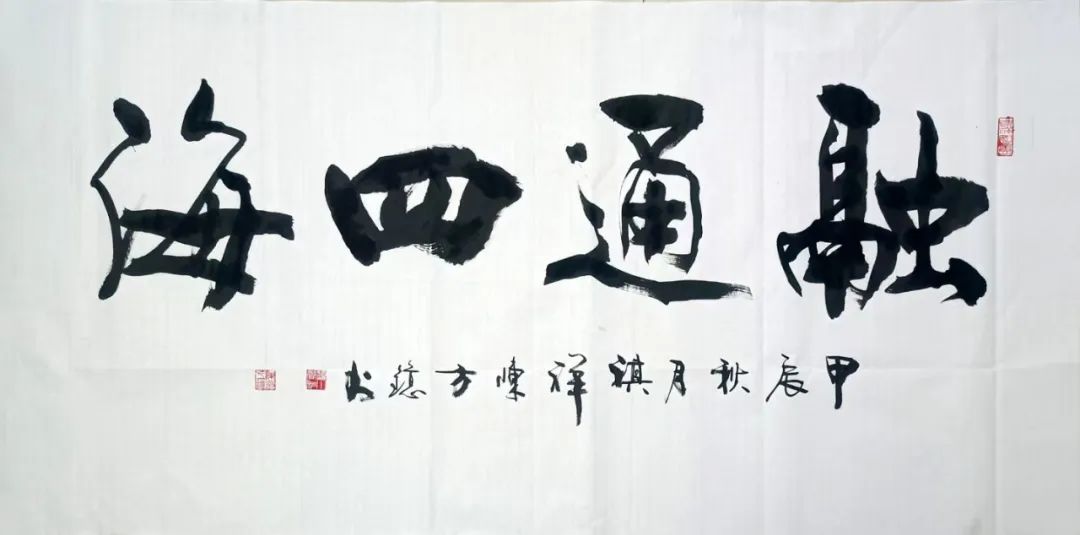 融通四海
甲辰秋月祺祥陳方书